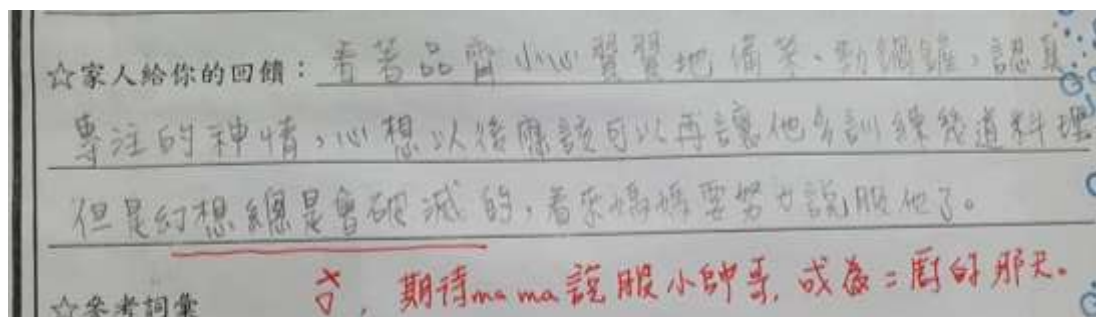 ☆家人給你的回饋：看著品齊小心翼翼地備菜、動鍋鏟，認真
專注的神情，心想以後應該可以再讓他多訓練幾道料理
但是幻想總是會破滅的，看來媽媽要努力說服他了。
，期待ma ma說服小帥哥，成為二廚的那天。
☆參考詞彙